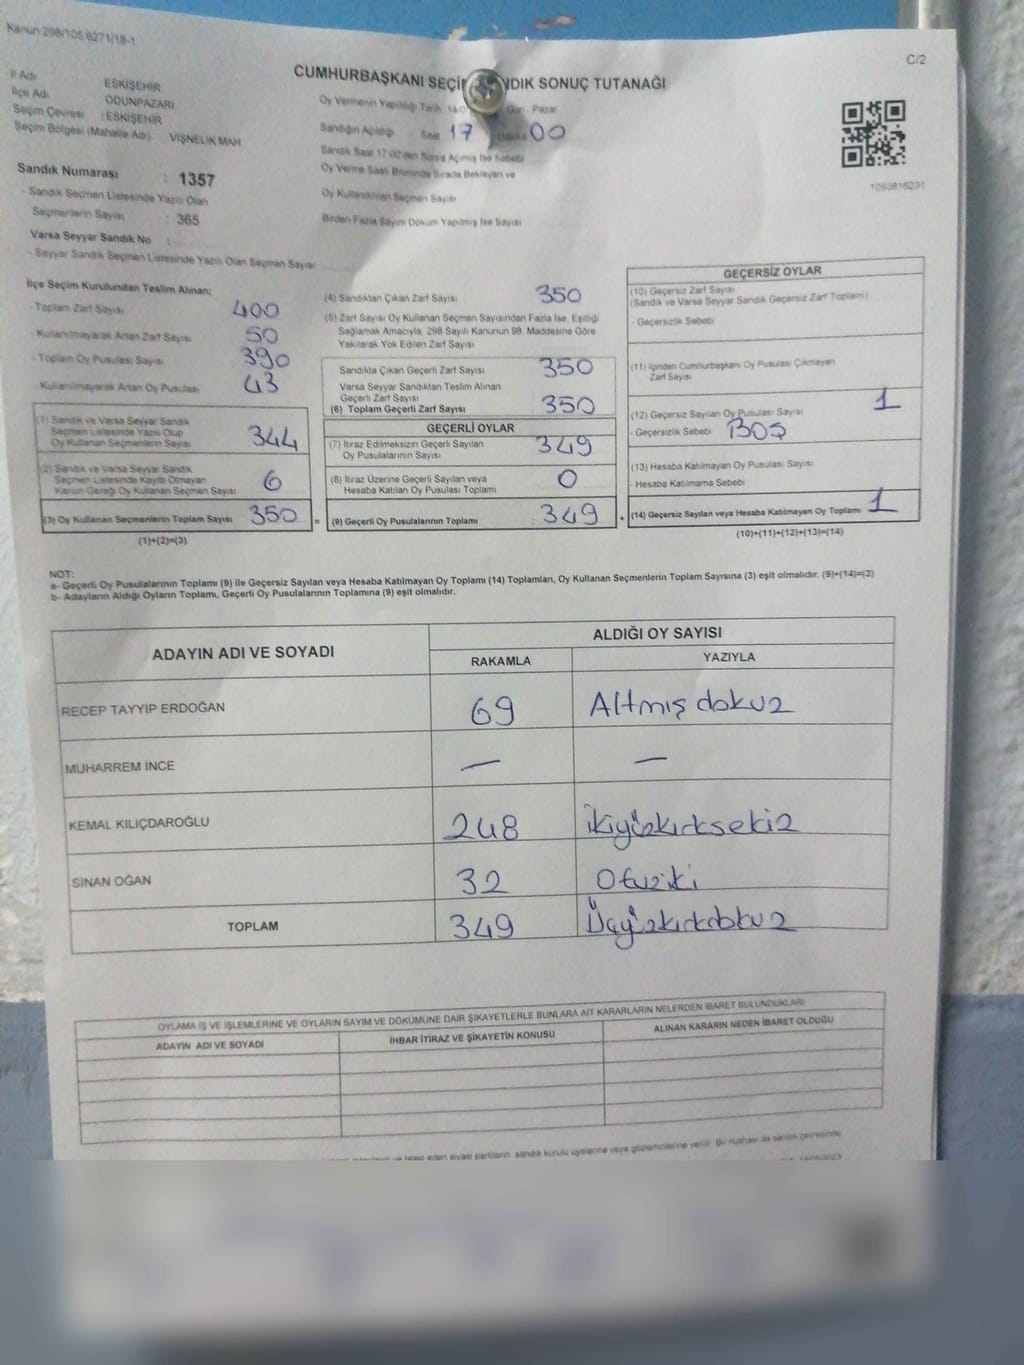 Kanun:298/105,6271/18-1
C/2
CUMHURBAŞKANI SEÇİ NDIK SONUÇ TUTANAĞI
İl Adı ESKİŞEHİR
İlçe Adı ODUNPAZARI
Seçim Çevresi : ESKİŞEHİR
Seçim Bölgesi (Mahalle Adı) VİŞNELİK MAH
Oy Vermenin Yapıldığı Tarih 14/0 Gün Pazar
Sandığın Açıldığı Saat 17 00
Sandık Saat 17:00'den Sonra Açılmış İse Sebebi
Oy Verme Saati Bitiminde Sırada Bekleyen ve
Oy Kullandırılan Seçmen Sayısı
Birden Fazla Sayım Döküm Yapılmış İse Sayısı
1093816231
Sandık Numarası : 1357
- Sandık Seçmen Listesinde Yazılı Olan
Seçmenlerin Sayısı : 365
Varsa Seyyar Sandık No :
- Seyyar Sandık Seçmen Listesinde Yazılı Olan Seçmen Sayısı
İlçe Seçim Kurulundan Teslim Alınan;
- Toplam Zarf Sayısı 400
- Kullanılmayarak Artan Zarf Sayısı 50
- Toplam Oy Pusulası Sayısı 390
- Kullanılmayarak Artan Oy Pusulası 43
(1) Sandık ve Varsa Seyyar Sandık
Seçmen Listesinde Yazılı Olup
Oy Kullanan Seçmenlerin Sayısı 344
(2) Sandık ve Varsa Seyyar Sandık
Seçmen Listesinde Kayıtlı Olmayan
Kanun Gereği Oy Kullanan Seçmen Sayısı 6
(3) Oy Kullanan Seçmenlerin Toplam Sayısı 350 =
(1)+(2)=(3)
(4) Sandıktan Çıkan Zarf Sayısı 350
(5) Zarf Sayısı Oy Kullanan Seçmen Sayısından Fazla İse, Eşitliği
Sağlamak Amacıyla, 298 Sayılı Kanunun 98. Maddesine Göre
Yakılarak Yok Edilen Zarf Sayısı
Sandıkta Çıkan Geçerli Zarf Sayısı 350
Varsa Seyyar Sandıktan Teslim Alınan
Geçerli Zarf Sayısı
(6) Toplam Geçerli Zarf Sayısı 350
GEÇERLİ OYLAR
(7) İtiraz Edilmeksizin Geçerli Sayılan
Oy Pusulalarının Sayısı 349
(8) İtiraz Üzerine Geçerli Sayılan veya
Hesaba Katılan Oy Pusulası Toplamı 0
(9) Geçerli Oy Pusulalarının Toplamı : 349 +
GEÇERSİZ OYLAR
(10) Geçersiz Zarf Sayısı
(Sandık ve Varsa Seyyar Sandık Geçersiz Zarf Toplamı)
- Geçersizlik Sebebi
(11) İçinden Cumhurbaşkanı Oy Pusulası Çıkmayan
Zarf Sayısı
(12) Geçersiz Sayılan Oy Pusulası Sayısı 1
- Geçersizlik Sebebi BOŞ
(13) Hesaba Katılmayan Oy Pusulası Sayısı
- Hesaba Katılmama Sebebi
(14) Geçersiz Sayılan veya Hesaba Katılmayan Oy Toplamı 1
(10)+(11)+(12)+(13)=(14)
NOT:
a- Geçerli Oy Pusulalarının Toplamı (9) ile Geçersiz Sayılan veya Hesaba Katılmayan Oy Toplamı (14) Toplamları, Oy Kullanan Seçmenlerin Toplam Sayısına (3) eşit olmalıdır. (9)+(14)=(3)
b- Adayların Aldığı Oyların Toplamı, Geçerli Oy Pusulalarının Toplamına (9) eşit olmalıdır.
ADAYIN ADI VE SOYADI ALDIĞI OY SAYISI
RAKAMLA YAZIYLA
RECEP TAYYİP ERDOĞAN 69 Altmış dokuz
MUHARREM İNCE — —
KEMAL KILIÇDAROĞLU 248 ikiyüzkırksekiz
SİNAN OĞAN 32 Otuziki
TOPLAM 349 Üçyüzkırkdokuz
OYLAMA İŞ VE İŞLEMLERİNE VE OYLARIN SAYIM VE DÖKÜMÜNE DAİR ŞİKAYETLERLE BUNLARA AİT KARARLARIN NELERDEN İBARET BULUNDUKLARI
ADAYIN ADI VE SOYADI İHBAR İTİRAZ VE ŞİKAYETİN KONUSU ALINAN KARARIN NEDEN İBARET OLDUĞU
eden siyasi partilerin sandık kurulu üyelerine veya gözlemcilerine verilir. Bir nüshası da sandık çevresinde
14/05/2023